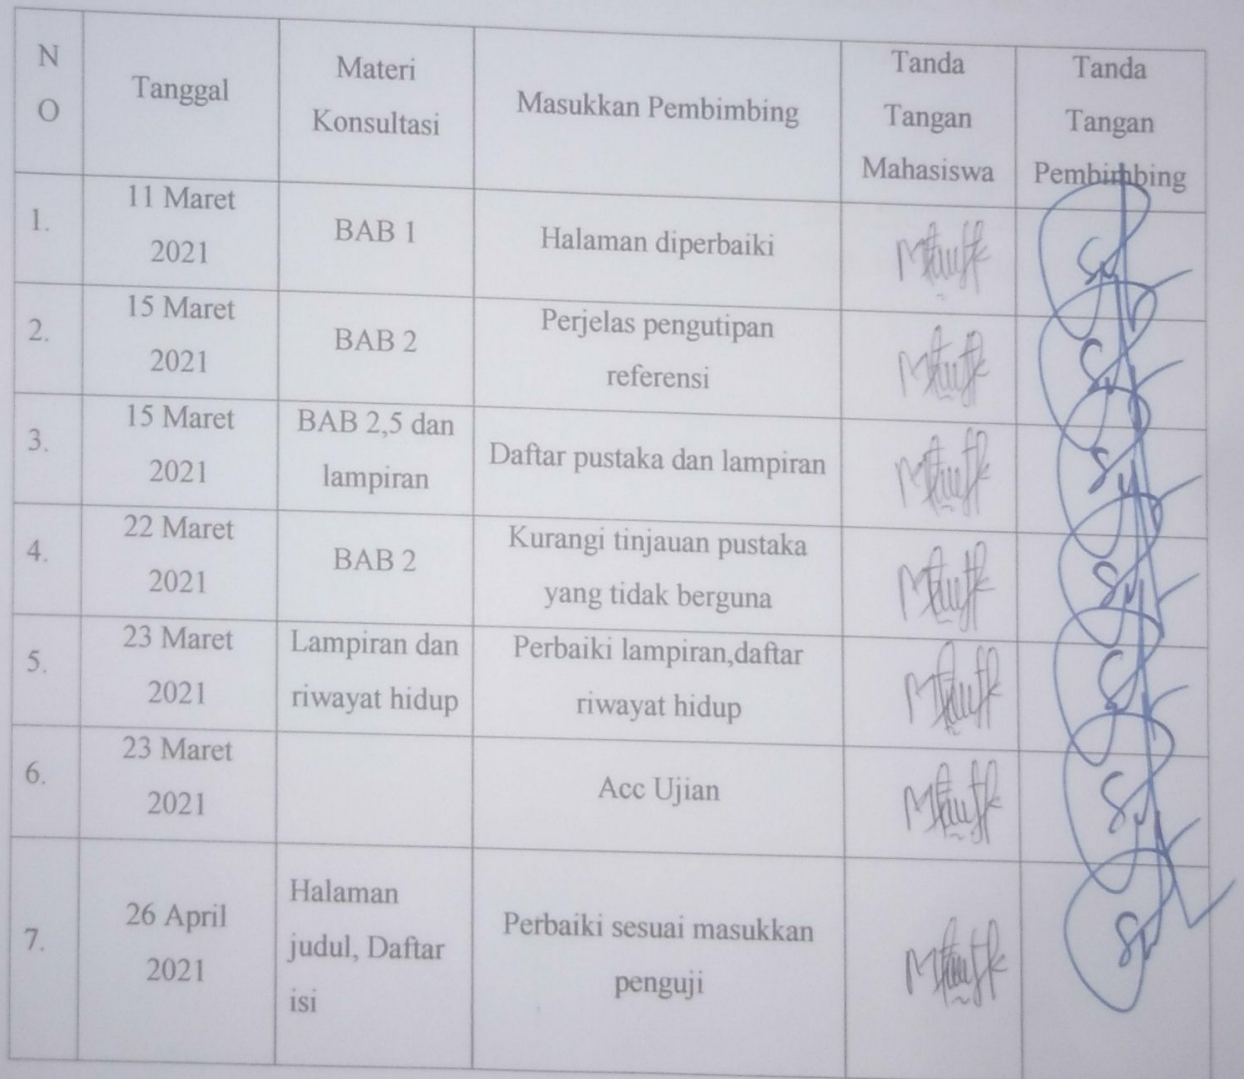 NO
Tanggal
Materi
Konsultasi
Masukkan Pembimbing
Tanda
Tangan
Mahasiswa
Tanda
Tangan
Pembimbing
1.
11 Maret
2021
BAB 1
Halaman diperbaiki
2.
15 Maret
2021
BAB 2
Perjelas pengutipan
referensi
3.
15 Maret
2021
BAB 2,5 dan
lampiran
Daftar pustaka dan lampiran
4.
22 Maret
2021
BAB 2
Kurangi tinjauan pustaka
yang tidak berguna
5.
23 Maret
2021
Lampiran dan
riwayat hidup
Perbaiki lampiran,daftar
riwayat hidup
6.
23 Maret
2021
Acc Ujian
7.
26 April
2021
Halaman
judul, Daftar
isi
Perbaiki sesuai masukkan
penguji